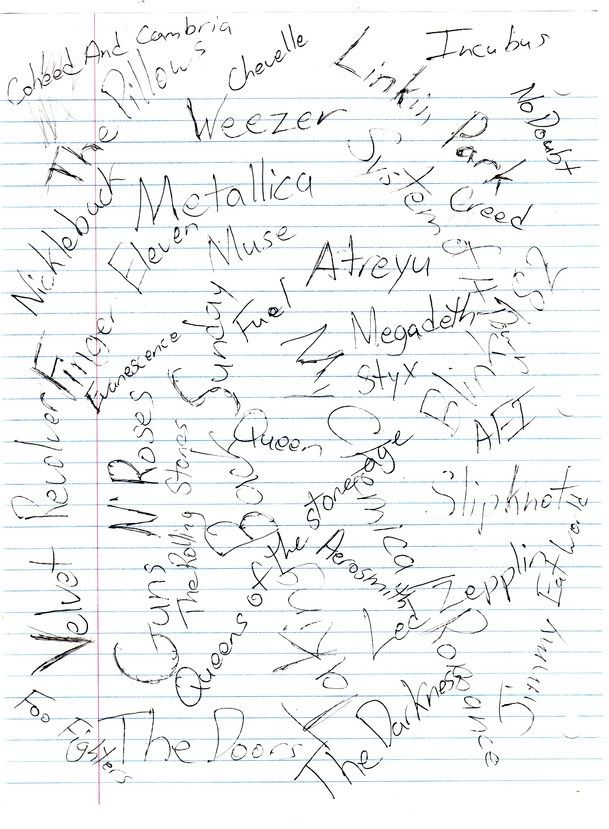 Coheed And Cambria
The Pillows
Chevelle
Linkin Park
Incubus
No Doubt
Weezer
System of A Down
Creed
Nickleback
Metallica
Finger Eleven
Muse
Atreyu
Fuel
Megadeth
Blink 182
Evanescence
Styx
AFI
Velvet Revolver
Guns N' Roses
The Rolling Stones
Taking Back Sunday
Queen
My Chemical Romance
Queens of the stoneage
Slipknot
Aerosmith
Led Zepplin
Jimmy Eat World
Foo Fighters
The Doors
The Darkness